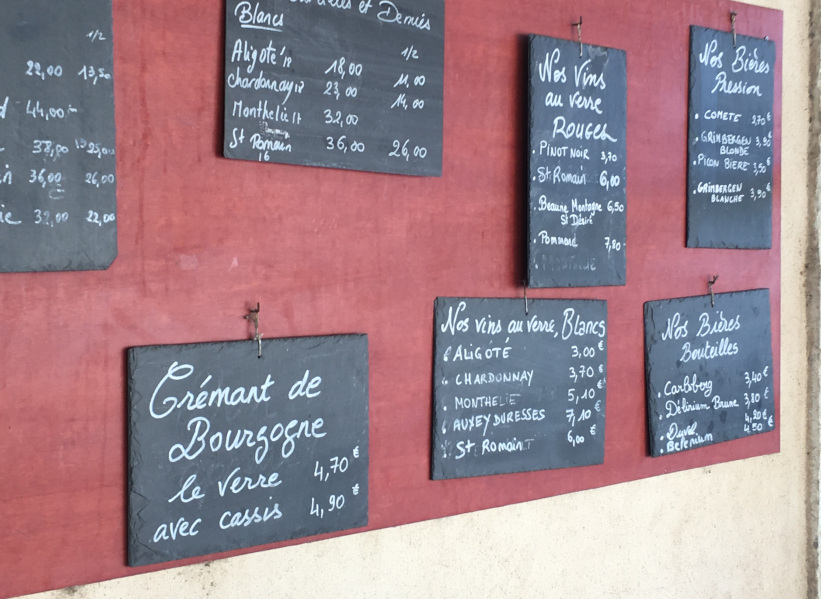 1/2
22,00 13,50
44,00
38,00 25,00
36,00 26,00
32,00 22,00
et Demies
Blancs
1/2
Aligoté 18 18,00 11,00
chardonnay 18 23,00 14,00
Monthelie 17 32,00
St Romain 36,00 26,00
16
Nos Vins
au verre
Rouges
PINOT NOIR 3,70
St. Romain 6,00
Beaune Montagne 6,50
St Désiré
Pommard 7,80
Nos Bières
Pression
COMETE 2,70 €
GRIMBERGEN 3,90 €
BLONDE
PICON BIERE 3,50 €
GRIMBERGEN 3,90 €
BLANCHE
Crémant de
Bourgogne
le verre 4,70 €
avec cassis 4,90 €
Nos vins au verre, Blancs
ALIGOTÉ 3,00 €
CHARDONNAY 3,70 €
MONTHELIE 5,10 €
AUXEY DURESSES 7,10 €
St. Romain 6,00 €
Nos Bières
Bouteilles
Carlsberg 3,40 €
Délirium Brune 3,80 €
Duvel 4,20 €
Belenium 4,50 €